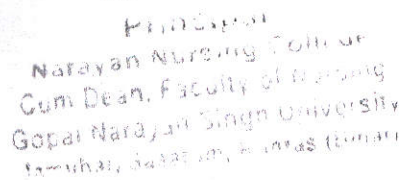 Principal
Narayan Nursing College
Cum Dean, Faculty of Nursing
Gopal Narayan Singh University
Jamuhar, Sasaram, Rohtas (Bihar)